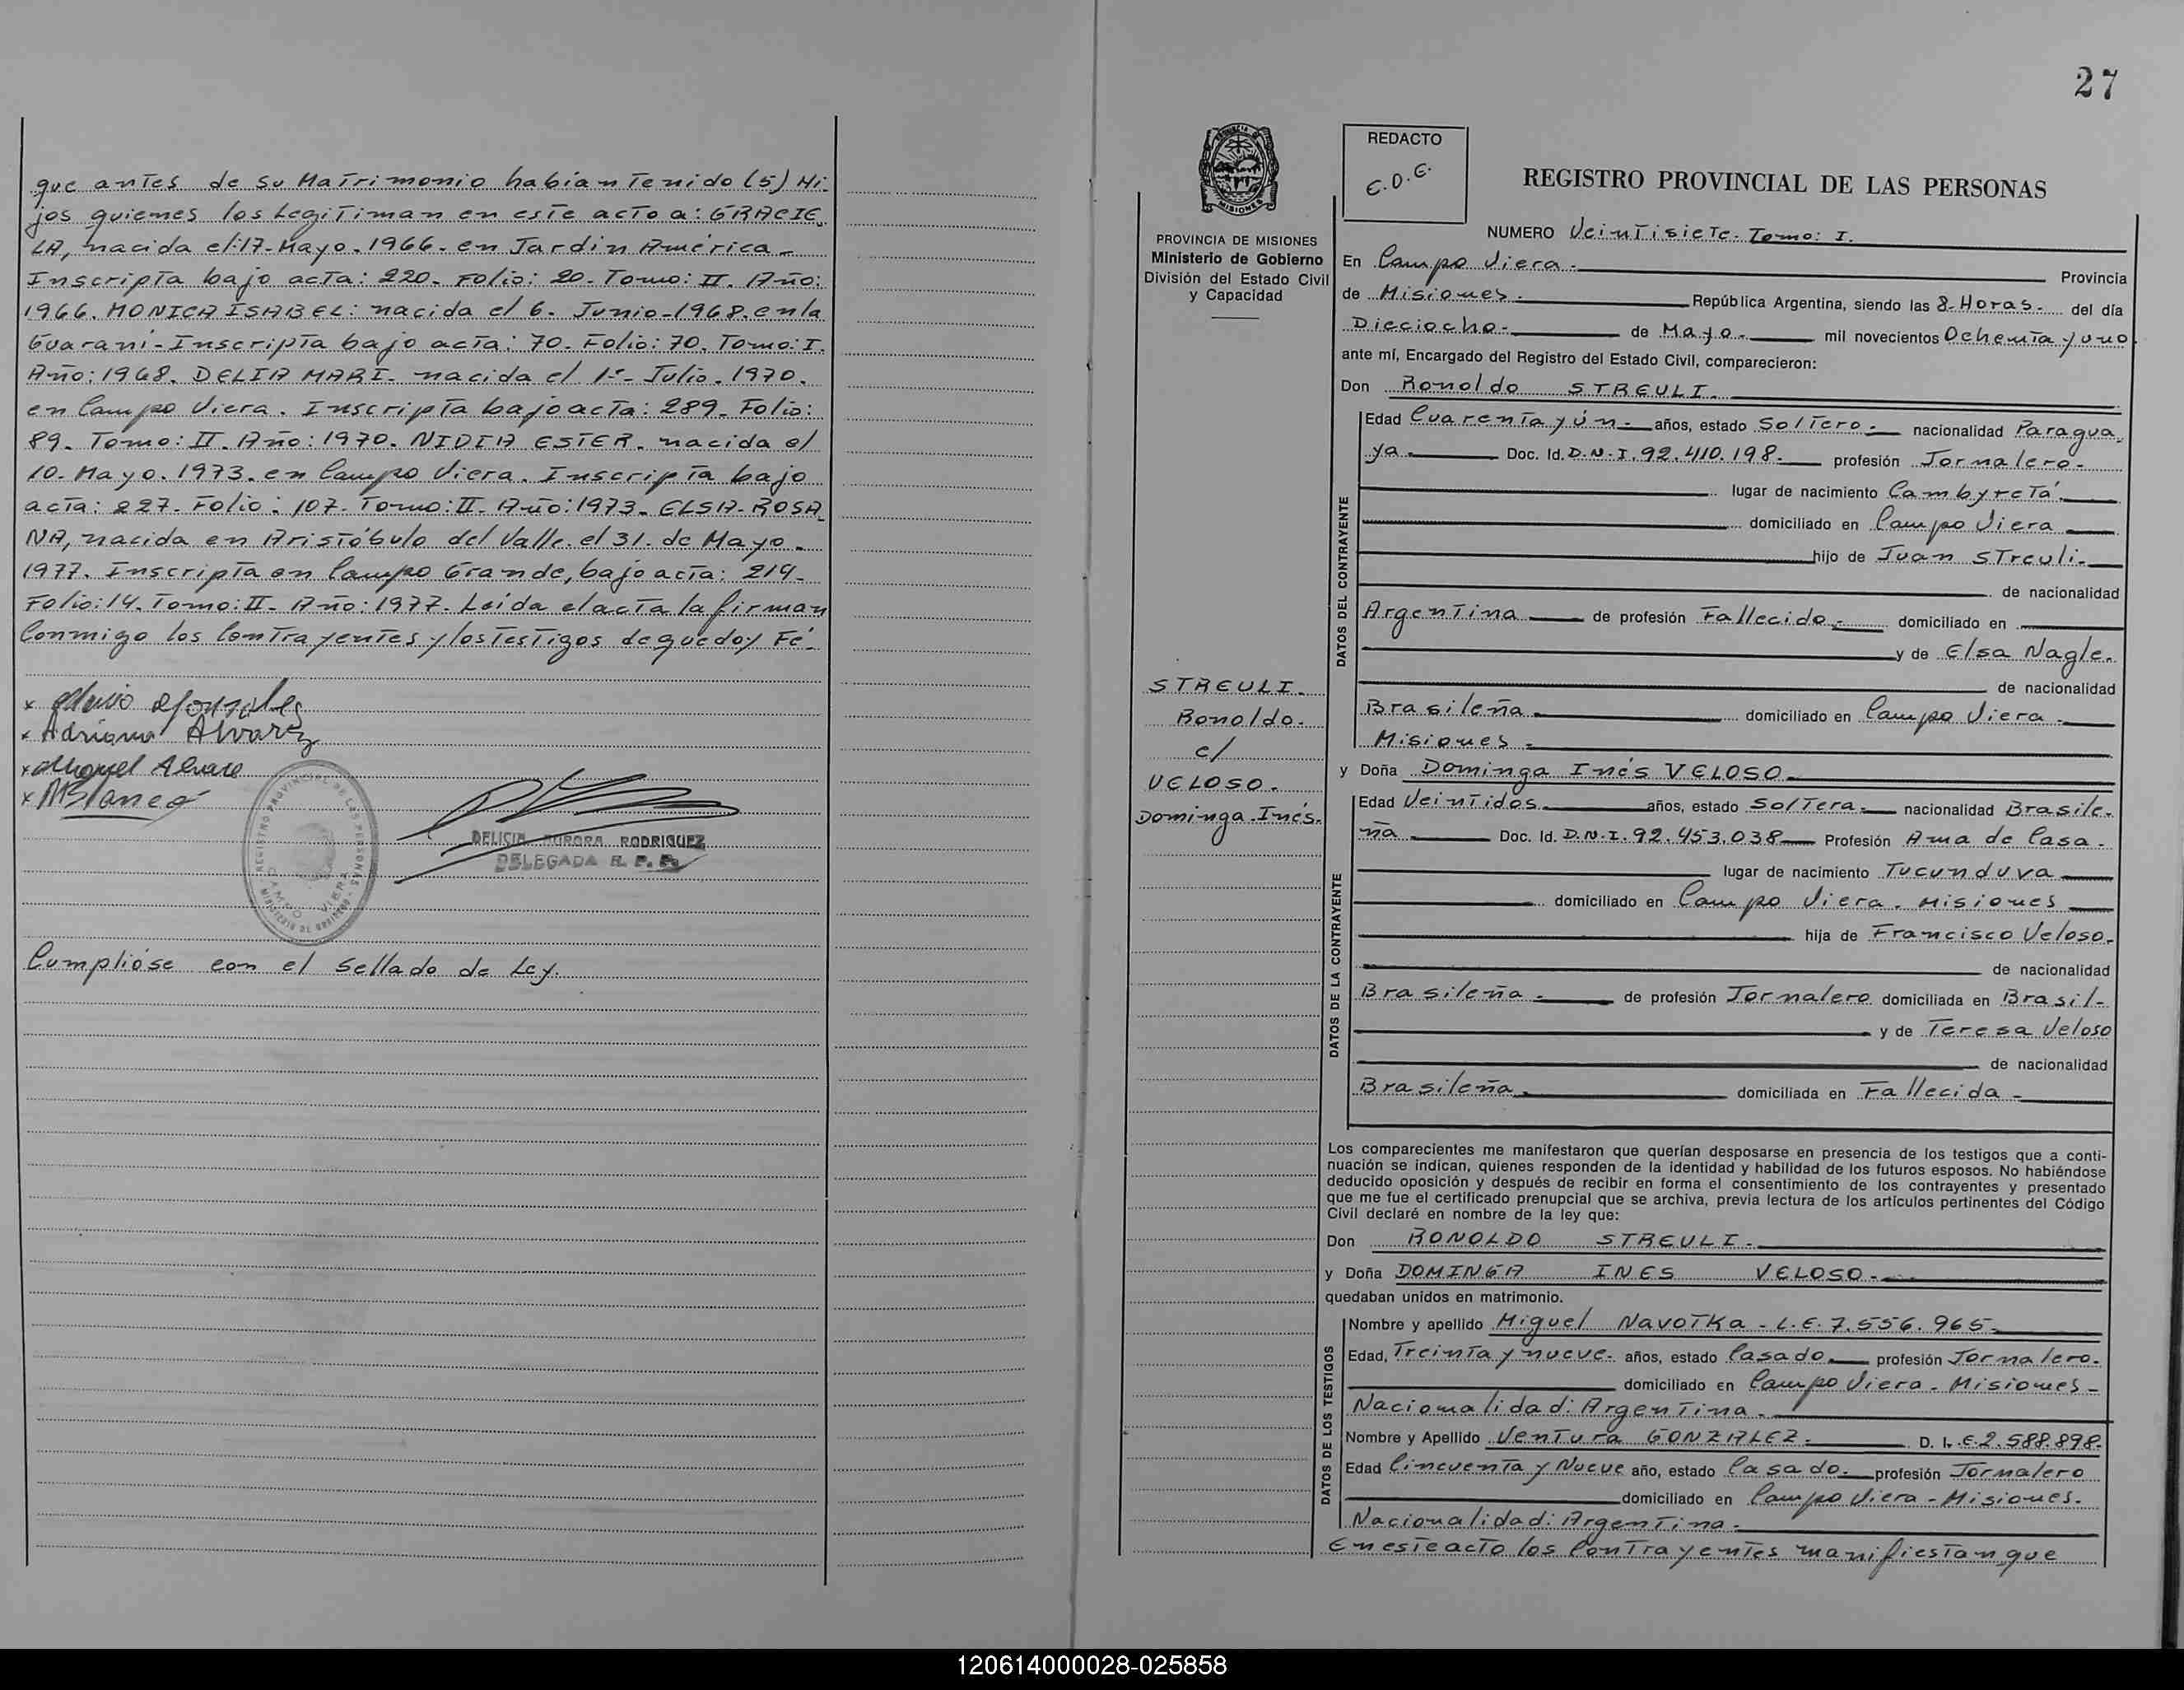 que antes de su Matrimonio habían Tenido (5) Hi-
jos quienes los Legitiman en este acto a: GRACIE-
LA, nacida el:17-Mayo-1966- en Jardin América-
Inscripta bajo acta: 220- Folio: 20- Tomo: II. Año:
1966. MONICA ISABEL: nacida el 6- Junio-1968. en la
Guarani- Inscripta bajo acta: 70- Folio: 70. Tomo: I.
Año: 1968. DELIA MARI- nacida el 1º- Julio-1970.
en Campo Viera. Inscripta bajo acta: 289- Folio:
89. Tomo: II. Año: 1970. NIDIA ESTER. nacida el
10. Mayo. 1973. en Campo Viera. Inscripta bajo
acta: 227- Folio: 107- Tomo: II- Año: 1973. ELSA-ROSA-
NA, nacida en Aristóbulo del Valle. el 31. de Mayo-
1977. Inscripta en Campo Grande, bajo acta: 214-
Folio: 14. Tomo: II- Año: 1977- Leida el acta la firman
Conmigo los Contrayentes y los Testigos de que doy Fé.
x
x Adriana Alvarez
x Miguel Alvare
x MBlanco
REGISTRO PROVINCIAL DE LAS PERSONAS
CAMPO VIERA
DELICIA AURORA RODRIGUEZ
DELEGADA R. P. P.
Cumplióse con el Sellado de Ley.
27
REDACTO
E.D.E.
REGISTRO PROVINCIAL DE LAS PERSONAS
PROVINCIA DE MISIONES
Ministerio de Gobierno
División del Estado Civil
y Capacidad
NUMERO Veintisiete- Tomo: I.
En Campo Viera- Provincia
de Misiones- República Argentina, siendo las 8-Horas- del día
Dieciocho- de Mayo- mil novecientos Ochenta y uno
ante mí, Encargado del Registro del Estado Civil, comparecieron:
Don Ronoldo STREULI.
DATOS DEL CONTRAYENTE
Edad Cuarenta y ún- años, estado Soltero- nacionalidad Paragua-
ya- Doc. Id. D.N.I. 92.410.198- profesión Jornalero-
lugar de nacimiento Cambyretá
domiciliado en Campo Viera
hijo de Juan Streuli-
de nacionalidad
Argentina de profesión Fallecido- domiciliado en
y de Elsa Nagle.
de nacionalidad
Brasileña domiciliado en Campo Viera-
Misiones-
STREULI.
Ronoldo.
c/
VELOSO.
Dominga Inés.
y Doña Dominga Inés VELOSO-
DATOS DE LA CONTRAYENTE
Edad Veintidos- años, estado Soltera- nacionalidad Brasile-
ña Doc. Id. D.N.I. 92.453.038- Profesión Ama de Casa-
lugar de nacimiento Tucunduva
domiciliado en Campo Viera. Misiones
hija de Francisco Veloso-
de nacionalidad
Brasileña- de profesión Jornalero domiciliada en Brasil-
y de Teresa Veloso
de nacionalidad
Brasileña- domiciliada en Fallecida-
Los comparecientes me manifestaron que querían desposarse en presencia de los testigos que a conti-
nuación se indican, quienes responden de la identidad y habilidad de los futuros esposos. No habiéndose
deducido oposición y después de recibir en forma el consentimiento de los contrayentes y presentado
que me fue el certificado prenupcial que se archiva, previa lectura de los artículos pertinentes del Código
Civil declaré en nombre de la ley que:
Don RONOLDO STREULI-
y Doña DOMINGA INES VELOSO-
quedaban unidos en matrimonio.
DATOS DE LOS TESTIGOS
Nombre y apellido Miguel NAVOTKA - L.E. 7.556.965-
Edad, Treinta y nueve- años, estado Casado- profesión Jornalero-
domiciliado en Campo Viera- Misiones-
Nacionalidad: Argentina-
Nombre y Apellido Ventura GONZALEZ- D. I. E. 2.588.898-
Edad Cincuenta y Nueve año, estado Casado- profesión Jornalero
domiciliado en Campo Viera - Misiones-
Nacionalidad: Argentina-
En este acto los Contrayentes manifiestan que
120614000028-025858